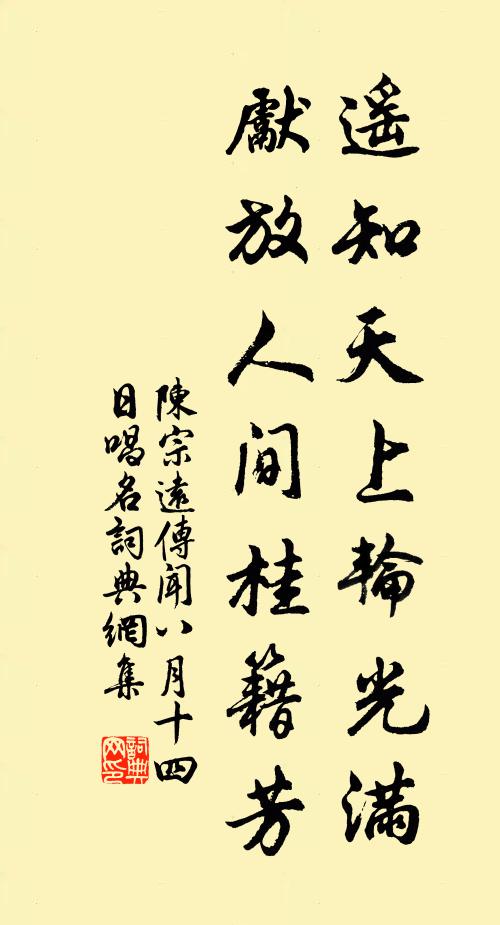 遥知天上輪光滿
獻放人間桂籍芳
陳宗遠傳聞八月十四
日唱名詞典網集
詞典
网印